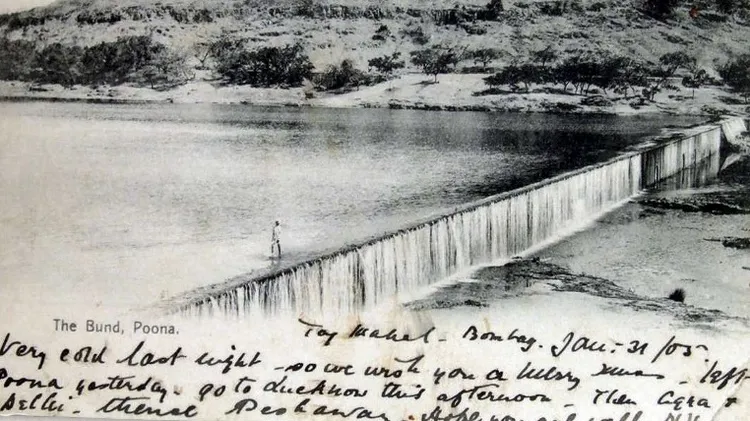 The Bund, Poona.
Taj Mahel - Bombay. Jan. 31/05.
Very cold last night - so we wish you a Merry Xmas - left
Poona yesterday - go to Lucknow this afternoon - Then Agra +
Delhi - thence Peshawar. Hope you are well.